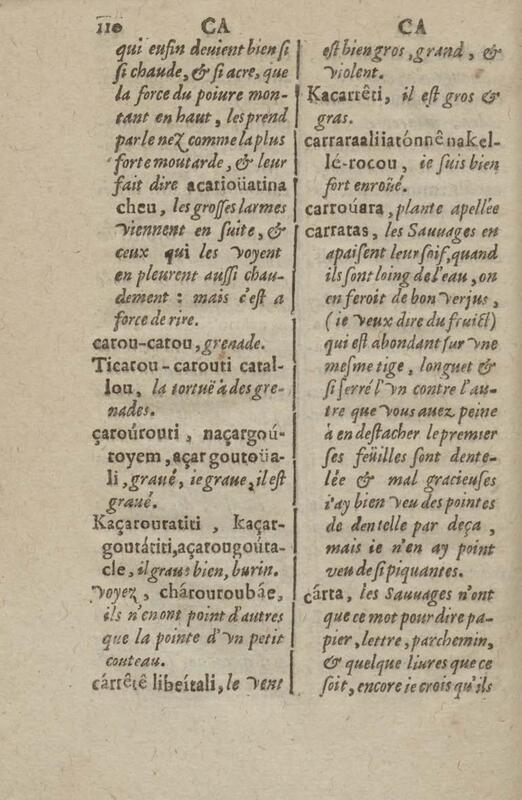 110 CA CA
qui enfin deuient bien si
si chaude, & si acre, que
la force du poiure mon-
tant en haut, les prend
par le nez comme la plus
forte moutarde, & leur
fait dire acarioüatina
cheu, les grosses larmes
viennent en suite, &
ceux qui les voyent
en pleurent aussi chau-
dement : mais c'est a
force de rire.
catou-catou, grenade.
Ticatou-carouti catal-
lou, la tortuë à des gre-
nades.
çaroúrouti, naçargoú-
toyem, açar goutoüa-
li, graué, ie graue, il est
graué.
Kaçarouratiti, kaçar-
goutátiti, açarougoúta-
cle, il graue bien, burin.
voyez, chárouroubáe,
ils n'en ont point d'autres
que la pointe d'vn petit
couteau.
cárrêtê libeítali, le vent
est bien gros, grand, &
violent.
Kacarrêti, il est gros &
gras.
carraraaliiatónnê nakel-
lé-rocou, ie suis bien
fort enroüé.
carroúara, plante apellée
carratas, les Sauuages en
apaisent leur soif, quand
ils sont loing de l'eau, on
en feroit de bon verjus,
(ie veux dire du fruict)
qui est abondant sur vne
mesme tige, longuet &
si serré l'vn contre l'au-
tre que vous auez peine
à en destacher le premier
ses feüilles sont dente-
lée & mal gracieuses
i'ay bien veu des pointes
de dentelle par deça,
mais ie n'en ay point
veu de si piquantes.
cárta, les Sauuages n'ont
que ce mot pour dire pa-
pier, lettre, parchemin,
& quelque liures que ce
soit, encore ie crois qu'ils